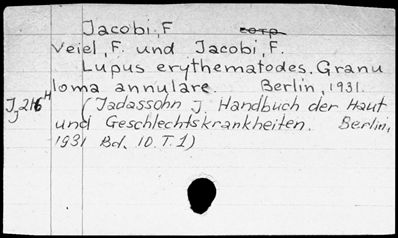 Jacobi, F
Veiel, F. und Jacobi, F.
Lupus erythematodes. Granu
loma annulare. Berlin, 1931.
(Jadassohn J. Handbuch der Haut
und Geschlechtskrankheiten. Berlin,
1931 Bd. 10. T. 1)